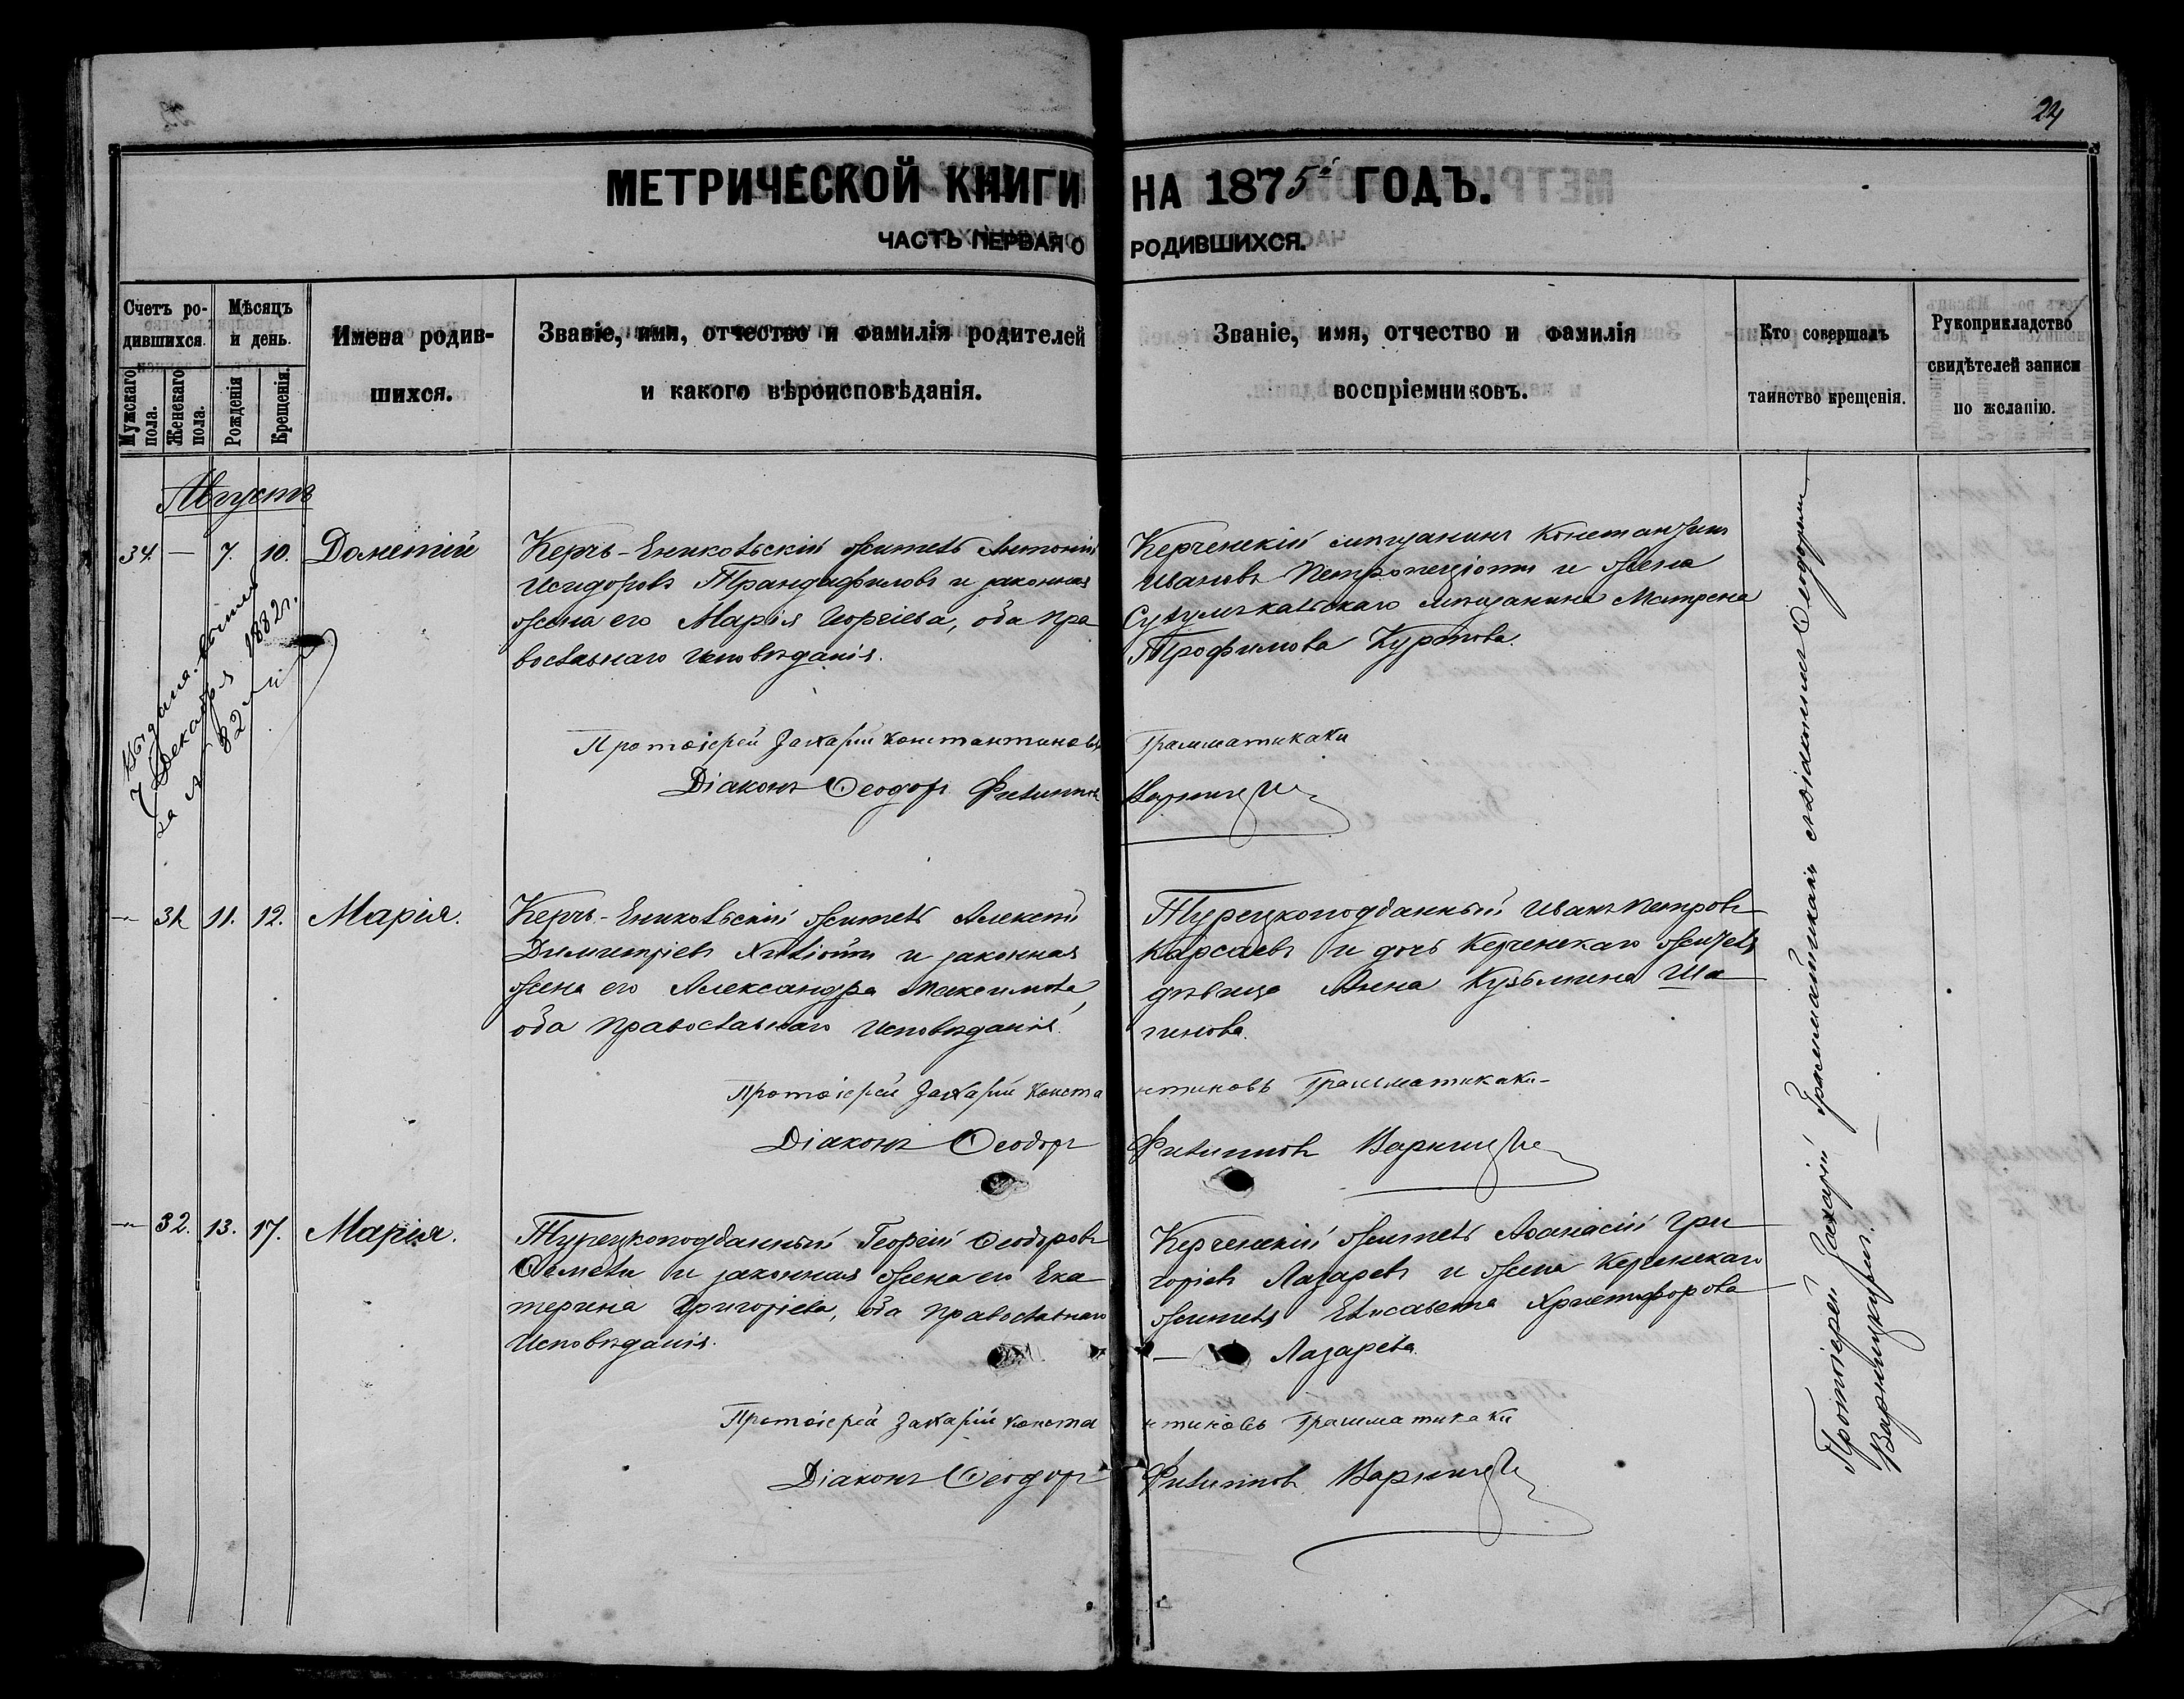 24
МЕТРИЧЕСКОЙ КНИГИ НА 1875й ГОДЪ.
ЧАСТЬ ПЕРВАЯ О РОДИВШИХСЯ.
Счетъ родившихся.
Мужскаго пола.
Женскаго пола.
Мѣсяцъ и день.
Рожденія
Крещенія.
Имена родив-
шихся.
Званіе, имя, отчество и фамилія родителей
и какого вѣроисповѣданія.
Званіе, имя, отчество и фамилія
воспріемниковъ.
Кто совершалъ
таинство крещенія.
Рукоприкладство
свидѣтелей записи
по желанію.
Августъ
34. — 7. 10. Дометій
Керчь-Еникольскій житель Антоній
Исидоровъ Трандафиловъ и законная
жена его Марія Георгіева, оба пра
вославнаго исповѣданія.
Керченскій мѣщанинъ Константинъ
Ивановъ и жена
мѣщанина Матрена
Трофимова Курпова.
Выдана
7 Декабря 1882 г.
за № 82
Протоіерей Захарій Константиновъ Грамматикаки
Діаконъ Ѳеодоръ Филипповъ Варницкій
— 31 11. 12. Марія.
Керчь-Еникольскій житель Алексѣй
Димитріевъ и законная
жена его Александра Максимова,
оба православнаго исповѣданія.
Турецкоподданный Иванъ Петровъ
Карсаевъ и дочь Керченскаго жителя
дѣвица Анна Кузьмина Ша
гинова.
Протоіерей Захарій Константиновъ Грамматикаки
Діаконъ Ѳеодоръ Филипповъ Варницкій
— 32. 13. 17. Марія.
Турецкоподданный Георгій Ѳеодоровъ
и законная жена его Ека
терина Григоріева, оба православнаго
исповѣданія.
Керченскій житель Аѳанасій Гри
горіевъ Лазаревъ и жена Керченскаго
жителя Елисавета Христофорова
— Лазарева.
Протоіерей Захарій Константиновъ Грамматикаки
Діаконъ Ѳеодоръ Филипповъ Варницкій
Протоіерей Захарій Грамматикаки съ діакономъ Ѳеодоромъ
Варницкимъ. —